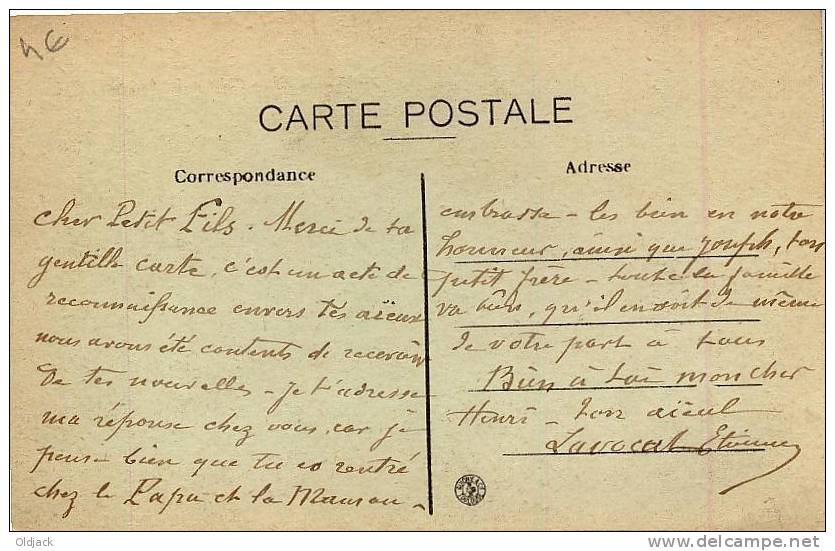 4€
CARTE POSTALE
Correspondance
cher Petit Fils. Merci de ta
gentille carte, c'est un acte de
reconnaissance envers tes aïeux
nous avons été contents de recevoir
de tes nouvelles - je t'adresse
ma réponse chez vous, car je
pense bien que tu es rentré
chez le Papa et la Maman -
Adresse
embrasse - les bien en notre
honneur, ainsi que Joseph, ton
petit frère - toute la famille
va bien, qu'il en soit de même
de votre part à tous
Bien à toi mon cher
Henri - ton aïeul
Lavocat Etienne
Oldjack
www.delcampe.net